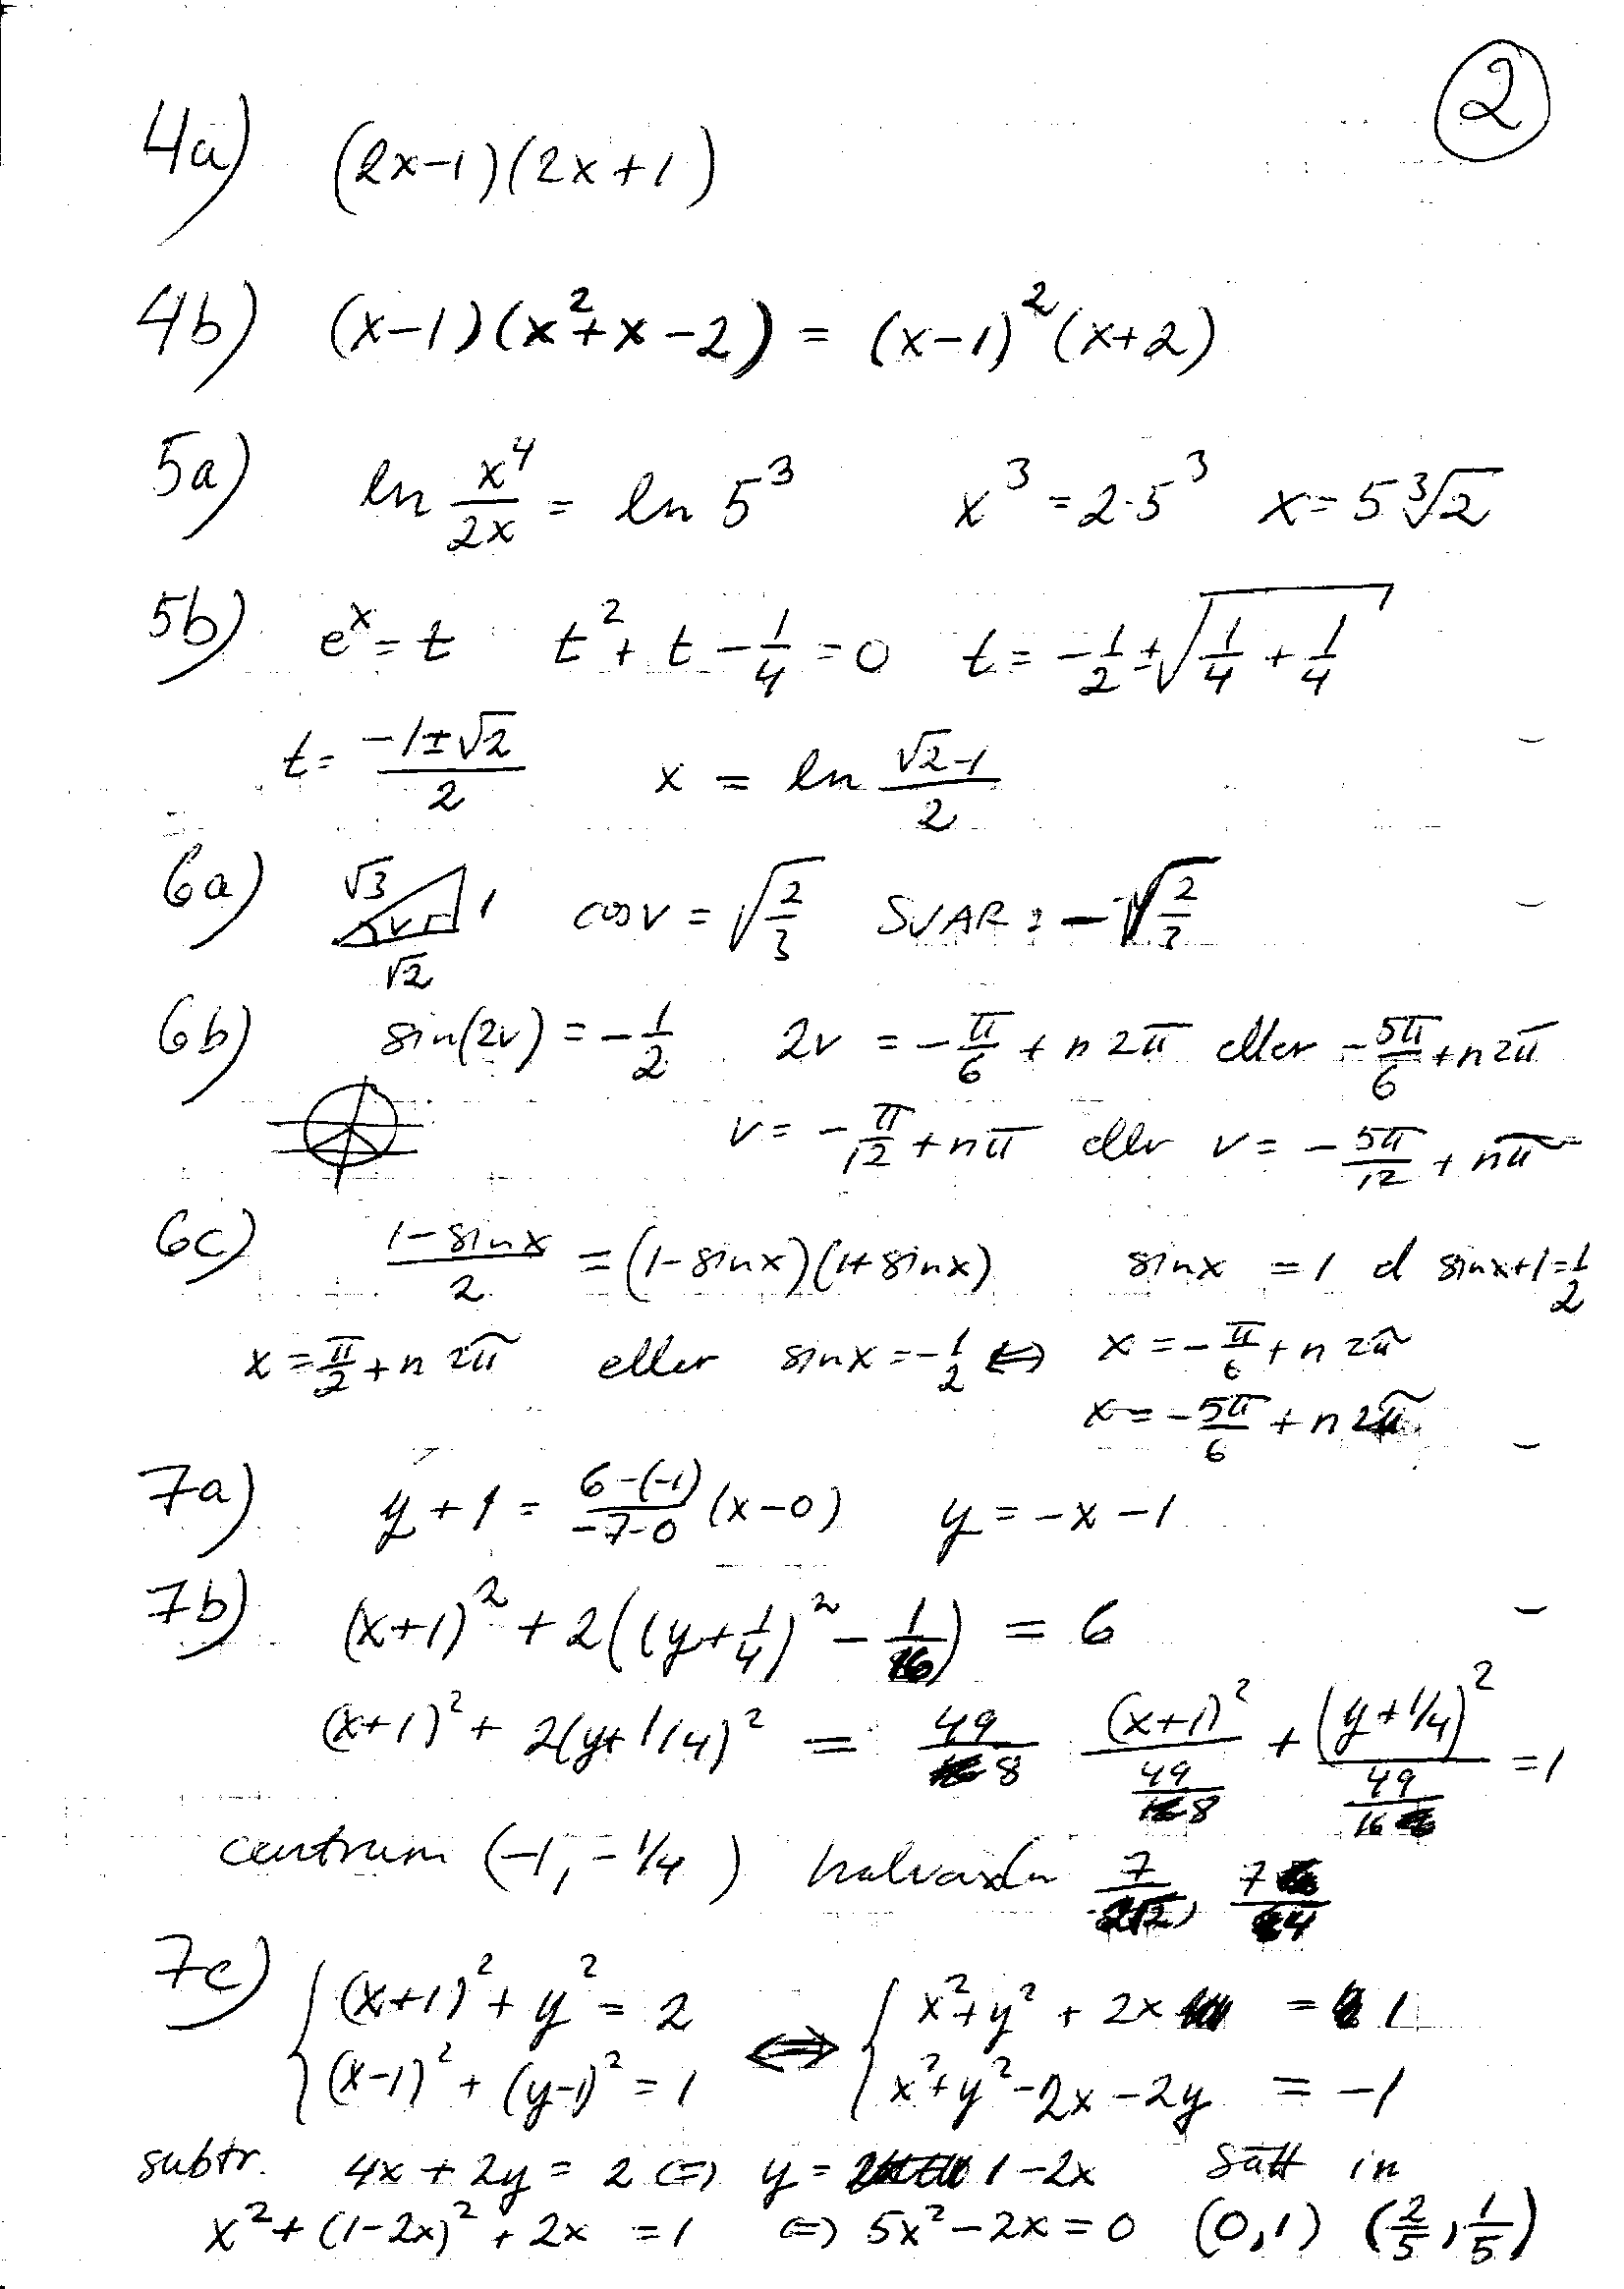 ②
4a) (2x-1)(2x+1)
4b) (x-1)(x²+x-2) = (x-1)²(x+2)
5a) ln x⁴/2x = ln 5³ x³ = 2·5³ x = 5∛2
5b) eˣ = t t² + t - 1/4 = 0 t = -1/2 ± √(1/4 + 1/4)
t = (-1±√2)/2 x = ln (√2-1)/2
6a) √3 v 1 √2 cos v = √(2/3) SVAR: -√(2/3)
6b) sin(2v) = -1/2 2v = -π/6 + n2π eller -5π/6 + n2π
v = -π/12 + nπ eller v = -5π/12 + nπ
6c) (1-sinx)/2 = (1-sinx)(1+sinx) sinx = 1 el sinx+1=1/2
x = π/2 + n2π eller sinx = -1/2 ⇔ x = -π/6 + n2π
x = -5π/6 + n2π
7a) y+1 = (6-(-1))/(-7-0) (x-0) y = -x-1
7b) (x+1)² + 2((y+1/4)² - 1/16) = 6
(x+1)² + 2(y+1/4)² = 49/8 (x+1)²/(49/8) + (y+1/4)²/(49/16) = 1
centrum (-1, -1/4) halvaxlar 7/2√2, 7/4
7c) { (x+1)² + y² = 2 ⇔ { x²+y² + 2x = 1
(x-1)² + (y-1)² = 1 x²+y²-2x-2y = -1
subtr. 4x + 2y = 2 ⇔ y = 1-2x Sätt in
x² + (1-2x)² + 2x = 1 ⇔ 5x²-2x = 0 (0,1) (2/5, 1/5)